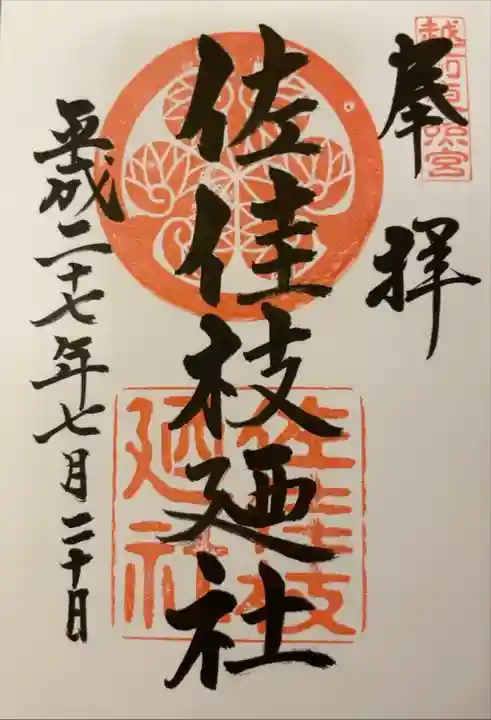 越前東照宮
奉拝
佐佳枝廼社
佐佳枝廼社
平成二十七年七月二十日